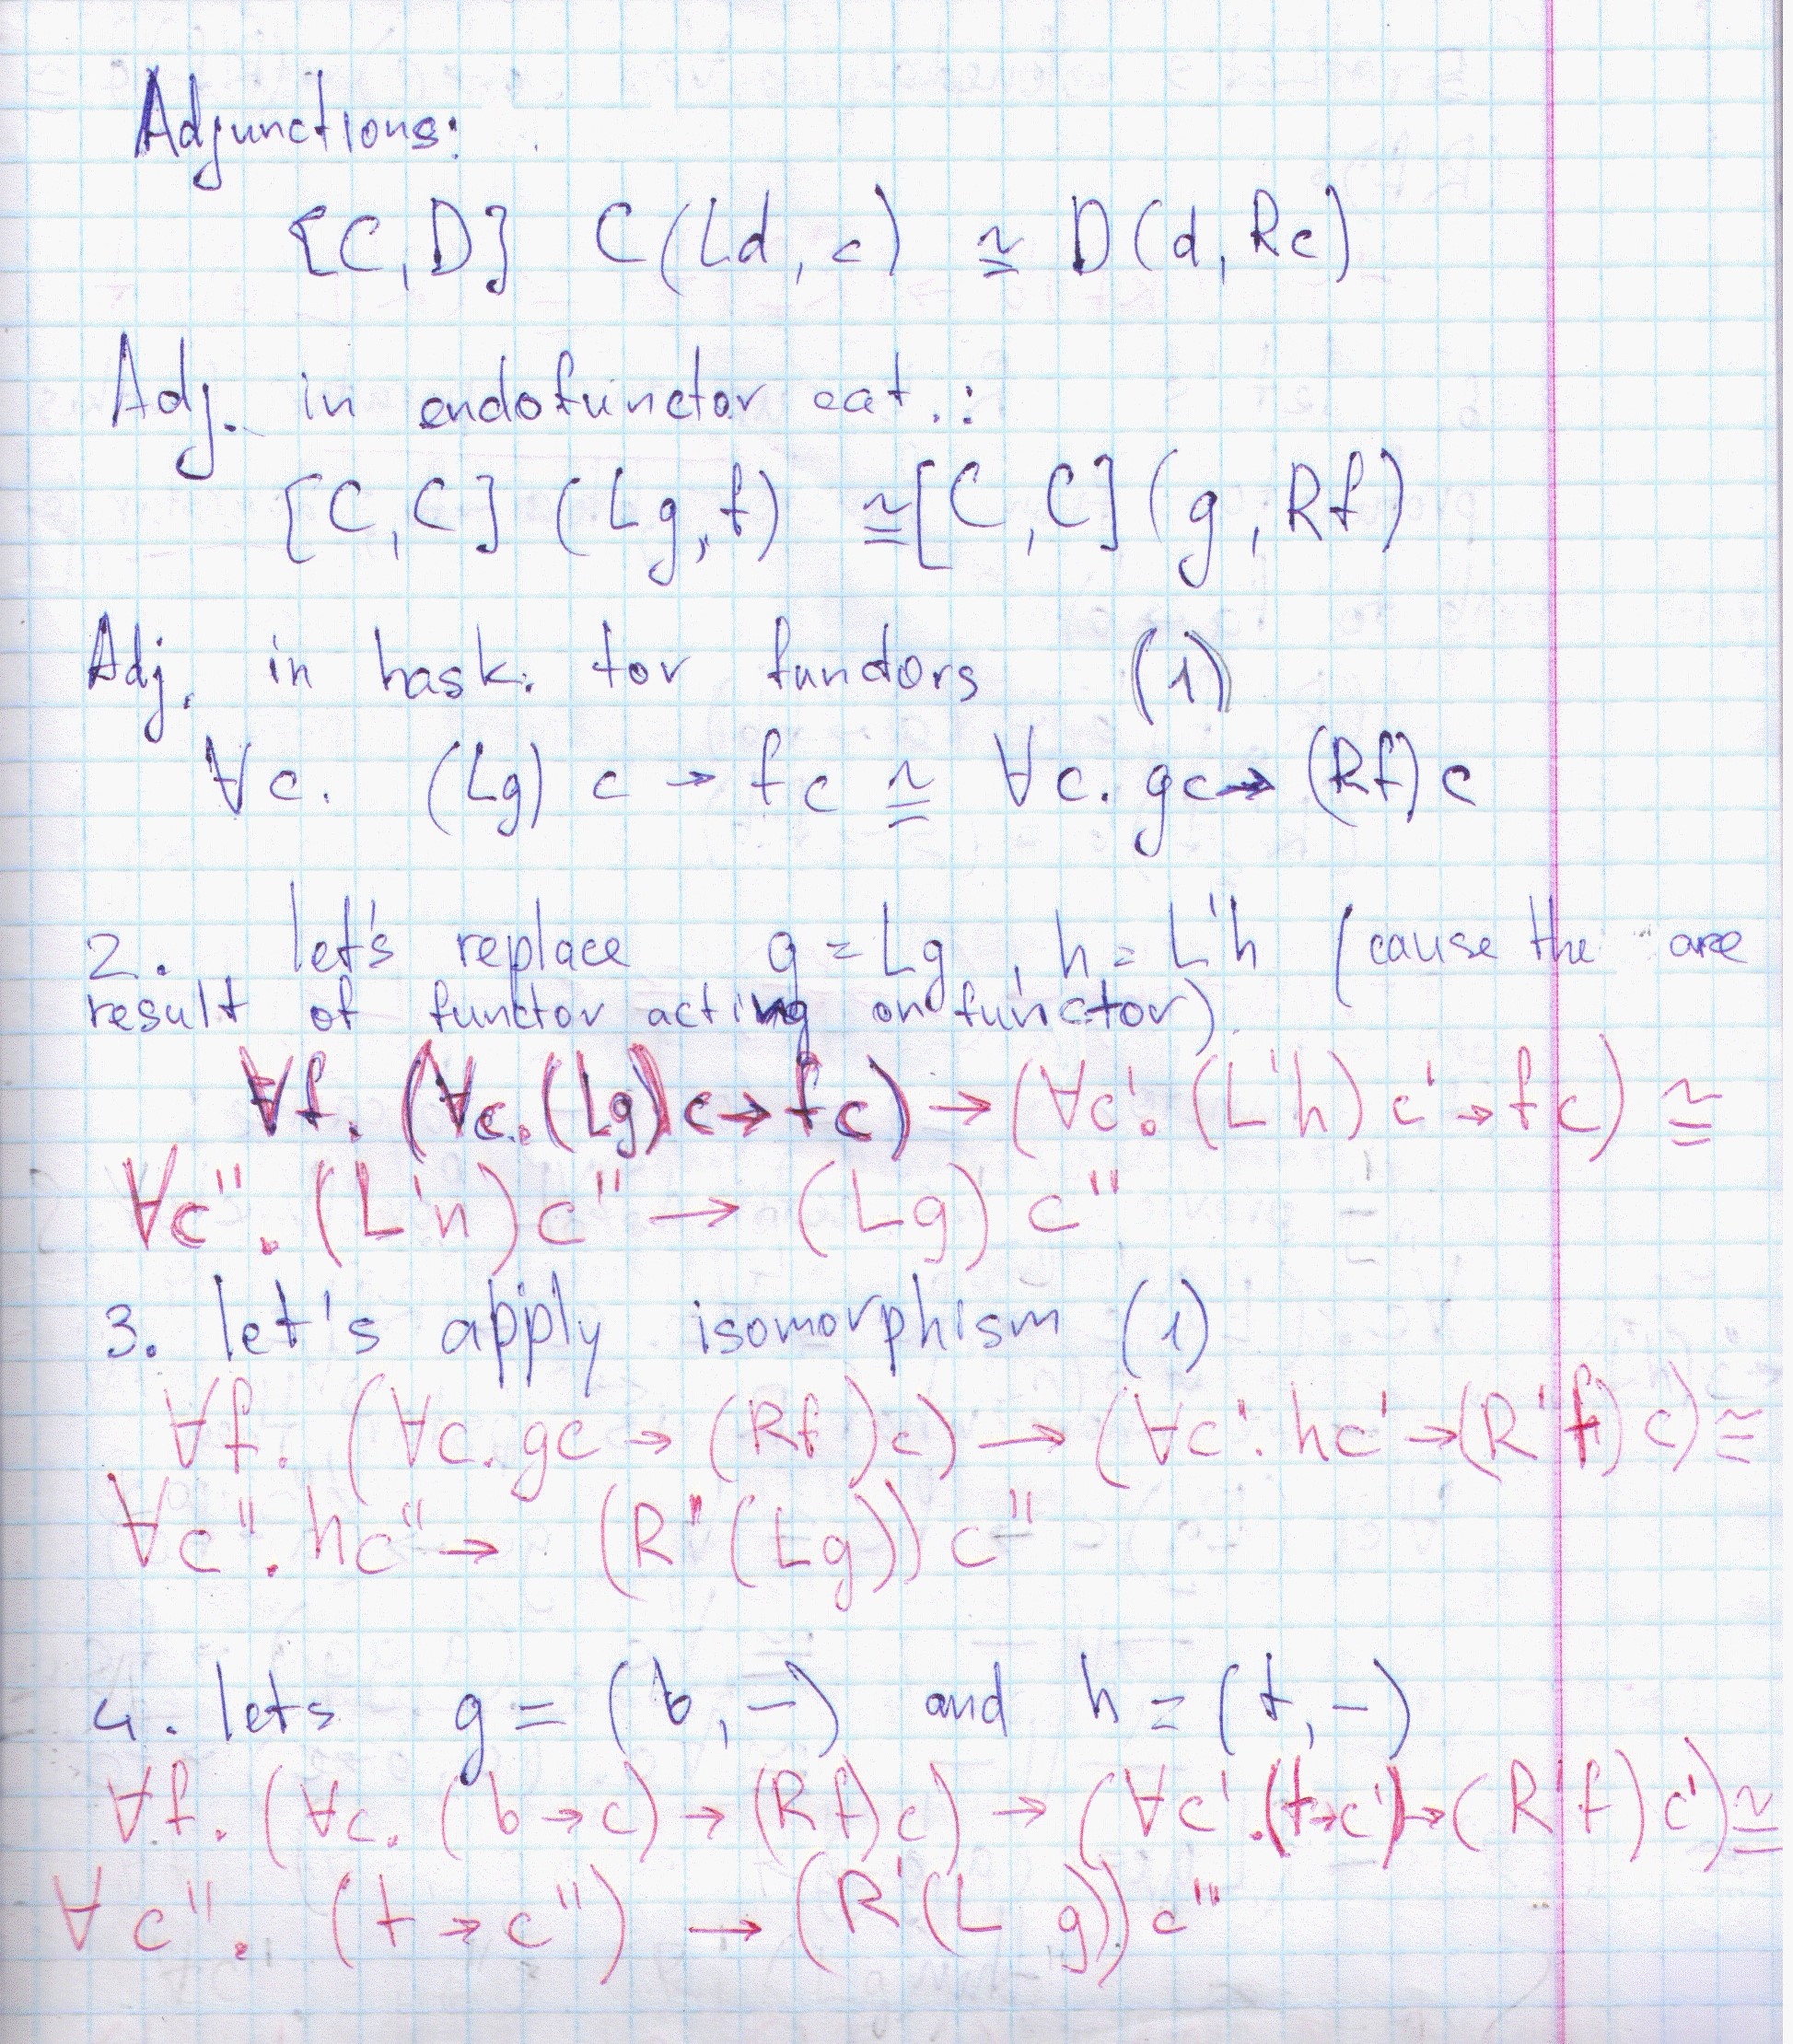 Adjunctions:
[C,D] C(Ld, c) ≅ D(d, Rc)
Adj. in endofunctor cat.:
[C,C] (Lg, f) ≅ [C,C](g, Rf)
Adj. in hask. for functors (1)
∀c. (Lg) c → fc ≅ ∀c. gc → (Rf) c
2. let's replace g = Lg, h = L'h (cause the are
result of functor acting on functor).
∀f. (∀c. (Lg) c → fc) → (∀c'. (L'h) c' → fc) ≅
∀c''. (L'h) c'' → (Lg) c''
3. let's apply isomorphism (1)
∀f. (∀c. gc → (Rf) c) → (∀c'. hc' → (R'f) c) ≅
∀c''. hc'' → (R'(Lg)) c''
4. lets g = (b, –) and h = (t, –)
∀f. (∀c. (b → c) → (Rf) c) → (∀c'. (t → c') → (R'f) c') ≅
∀c''. (t → c'') → (R'(L g)) c''